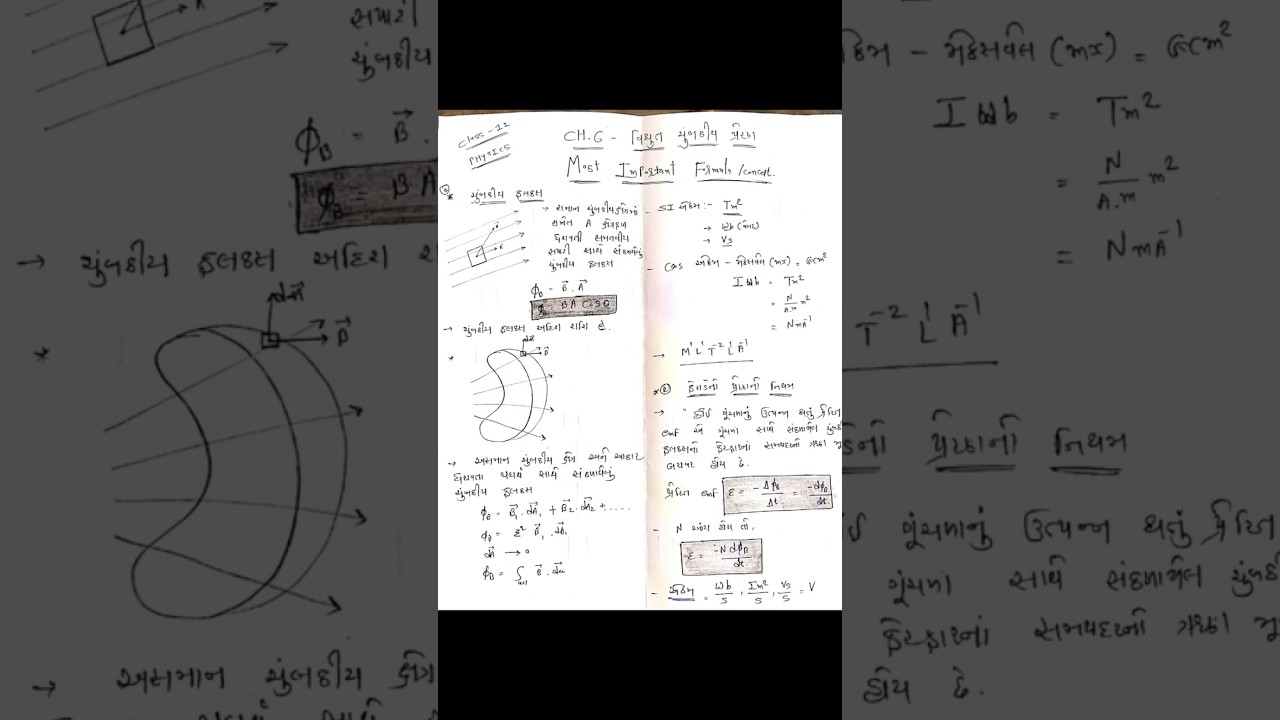 CLASS-12
PHYSICS
CH.6 - વિદ્યુત ચુંબકીય પ્રેરણ
Most Important Formula/concept.
* ① ચુંબકીય ફ્લક્સ
→ સમાન ચુંબકીયક્ષેત્રમાં
રાખેલ A ક્ષેત્રફળ
ધરાવતી સમતલીય
સપાટી સાથે સંકળાયેલું
ચુંબકીય ફ્લક્સ
ϕB = B⃗ . A⃗
ϕB = BA Cosθ
→ ચુંબકીય ફ્લક્સ અદિશ રાશિ છે.
*
dA⃗
B⃗
→ અસમાન ચુંબકીય ક્ષેત્ર અને આકાર
ધરાવતા પૃષ્ઠ સાથે સંકળાયેલું
ચુંબકીય ફ્લક્સ
ϕB = B⃗1 . dA⃗1 + B⃗2 . dA⃗2 + ....
dA⃗ → 0
- SI એકમ :- Tm²
→ Wb (વેબર)
→ Vs
- CGS એકમ - મેક્સવેલ (mx) = Gcm²
1 Wb = Tm²
= N/A.m m²
= NmA⁻¹
→ M¹L¹T⁻²L¹A⁻¹
* ② ફેરાડેનો પ્રેરણનો નિયમ
→ "કોઈ ગૂંચળાનું ઉત્પન્ન થતું પ્રેરિત
emf એ ગૂંચળા સાથે સંકળાયેલ ચુંબકીય
ફ્લક્સના ફેરફારનાં સમયદરનાં ઋણ
હોય છે.
પ્રેરિત emf ε = -ΔϕB/Δt = -dϕB/dt
- N આંટા હોય તો,
ε = -N dϕB/dt
- એકમ = Wb/s , Tm²/s , Vs/s = V